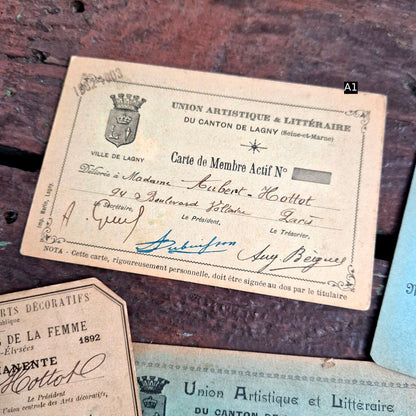 A1
1902-1903
UNION ARTISTIQUE & LITTÉRAIRE
DU CANTON DE LAGNY (Seine-et-Marne)
VILLE DE LAGNY
Carte de Membre Actif N°
Délivrée à Madame Aubert-Hottot
94 Boulevard Voltaire, Paris
Le Secrétaire, Le Président, Le Trésorier,
Aug Bergue
NOTA - Cette carte, rigoureusement personnelle, doit être signée au dos par le titulaire
ARTS DÉCORATIFS
S DE LA FEMME
-Élysées 1892
MANENTE
Hottot
Le Président
l'Union centrale des Arts décoratifs,
Union Artistique et Littéraire
DU CANTON DE